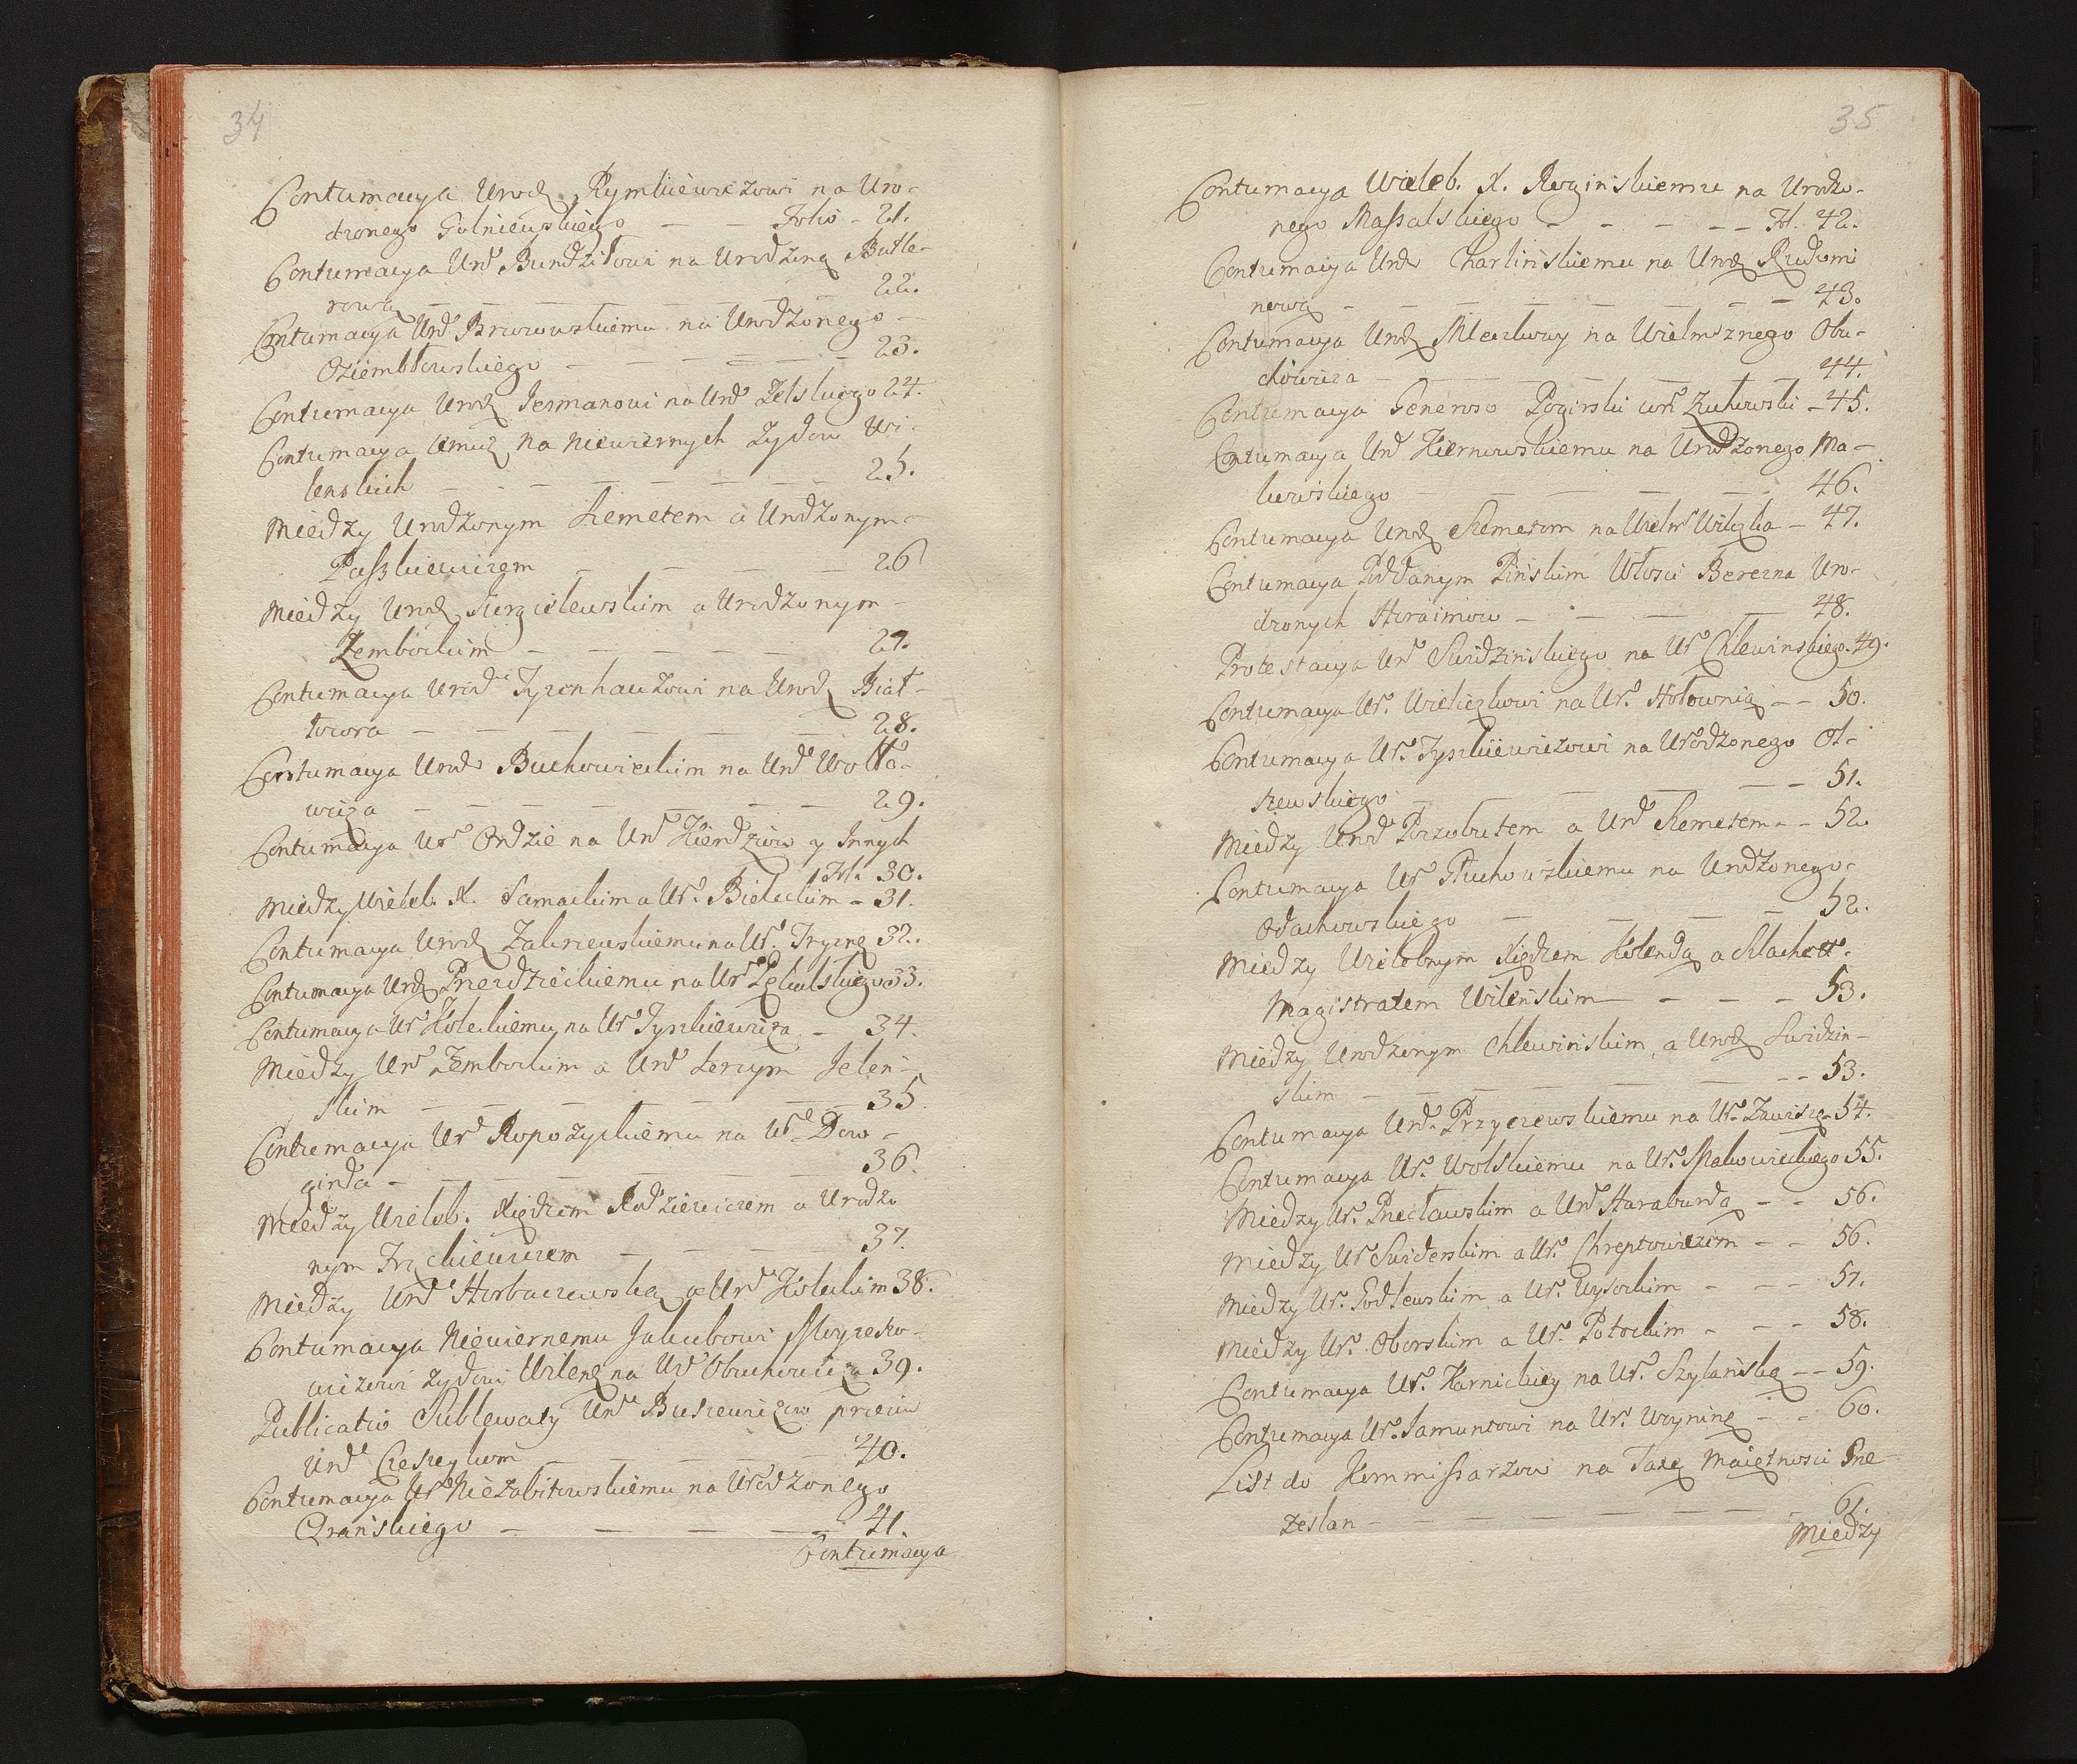 34
Contumacya Urodz. Rymkiewiczowi na Uro-
dzonego Golniewskiego — — Folio - 21.
Contumacya Urd Bundziłłowi na Urodzoną Butle-
rową — — — — — — 22.
Contumacya Urd Brzozowskiemu na Urodzonego —
Oziembłowskiego — — — — 23.
Contumacya Urodz Jesmanowi na Urd Zelskiego 24.
Contumacya temuż na niewiernych Zydow Wi-
lenskich — — — — — — 25.
Między Urodzonym Szemetem a Urodzonym —
Paszkiewiczem — — — — 26
Między Urodz Jurgielewskim a Urodzonym —
Zembockim — — — — — 27.
Contumacya Urod Tyzenhauzowi na Urodz Biał-
łozora — — — — — — 28.
Contumacya Urod Buchowieckim na Urd Wołło-
wicza — — — — — — 29.
Contumacya Ur Ordzie na Urd Kierdziow y Innych
Fol. 30.
Między Wieleb. X. Sarnackim a Ur. Bieleckim - 31.
Contumacya Urodz Zakrzewskiemu na Ur. Tryznę 32.
Contumacya Urdz Przezdzieckiemu na Ur Pękalskiego 33.
Contumacya Ur Koleckiemu na Ur Tyszkiewicza — 34.
Między Urd Zembockim a Urd Jerzym Jelen-
skim — — — — — — 35
Contumacya Urd Kopozyckiemu na Ur. Dow-
girda — — — — — — 36.
Między Wieleb. Xiędzem Rodziewiczem a Urodzo
nym Frąckiewiczem — — — — 37.
Między Urd Horbaczewską a Urd Koleckim 38.
Contumacya Niewiernemu Jakubowi Moyzesko-
wiczowi Zydowi Wileń na Ur Obuchowicza 39.
Publicatio Sublewaty Urd Busiewiczow przeciw
Urd Czeszeykom — — — — 40.
Contumacya Ur Niezabitowskiemu na Urodzonego
Oranskiego — — — — 41.
Contumacya
35
Contumacya Wieleb. X. Roginskiemu na Urodzo-
nego Massalskiego — — — — Fol. 42.
Contumacya Urod Charlinskiemu na Urodz Rudomi
nową — — — — — — — 43.
Contumacya Urodz Mleczkowy na Wielmoznego Obu-
chowicza — — — — — — 44.
Contumacya Generoso Pogirski Ur Zukowski - 45.
Contumacya Urd Kiernowskiemu na Urodzonego Ma-
kowskiego — — — — — 46.
Contumacya Urodz Szemetom na Wielm Wilczka — 47.
Contumacya Poddanym Pinskim Włosci Berezna Uro-
dzonych Horaimow — — — — 48.
Protestacya Ur Swidzinskiego na Ur Chlewinskiego. 49.
Contumacya Ur. Wieliczkowi na Ur. Hołownią — — 50.
Contumacya Ur. Tyszkiewiczowi na Urodzonego Ol-
szewskiego — — — — — 51.
Między Urod Porzobutem a Urd Szemetem — — 52.
Contumacya Ur Puchowskiemu na Urodzonego —
Odachowskiego — — — — 52.
Między Wielebnym Xiędzem Kolendą a Szlachett.
Magistratem Wilenskim — — — — 53.
Między Urodzonym Chlewinskim, a Urodz Swidzin-
skim — — — — — — 53.
Contumacya Urd. Przyczewskiemu na Ur. Zawiszę 54.
Contumacya Ur. Wolskiemu na Ur. Makowieckiego 55.
Między Ur. Precławskim a Urd Haraburdą — — 56.
Między Ur Swiderskim a Ur. Chreptowiczem — — 56.
Między Ur. Godlewskim a Ur. Wysockim — — — 57.
Między Ur. Oborskim a Ur. Potockim — — — 58.
Contumacya Ur. Karnickiey na Ur. Szylanską — — 59.
Contumacya Ur. Jamuntowi na Ur. Woyninę — — 60.
List do Kommissarzow na Taxę Maiętnosci Prze
zeslan — — — — — — — 61.
Między